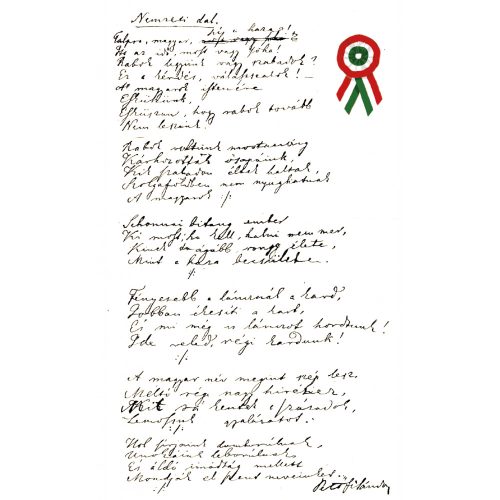 Nemzeti dal.
Talpra magyar, hí a haza!
Itt az idő, most vagy soha!
Rabok legyünk vagy szabadok?
Ez a kérdés, válasszatok! —
A' magyarok istenére
Esküszünk,
Esküszünk, hogy rabok tovább
Nem leszünk!
Rabok voltunk mostanáig
Kárhozottak ősapáink,
Kik szabadon éltek haltak,
Szolgaföldben nem nyughatnak
A magyarok :/:
Sehonnai bitang ember
Ki most, ha kell, halni nem mer,
Kinek drágább rongy élete,
Mint a haza becsülete.
:/:
Fényesebb a láncznál a kard,
Jobban ékesíti a kart,
És mi még is lánczot hordtunk!
Ide veled, régi kardunk!
:/:
A magyar név megint szép lesz,
Méltó régi nagy hiréhez,
Mit rá kentek a századok,
Lemossuk gyalázatot.
:/:
Hol sírjaink domborulnak,
Unokáink leborulnak
És áldó imádság mellett
Mondják el szent neveinket...
Petőfi Sándor